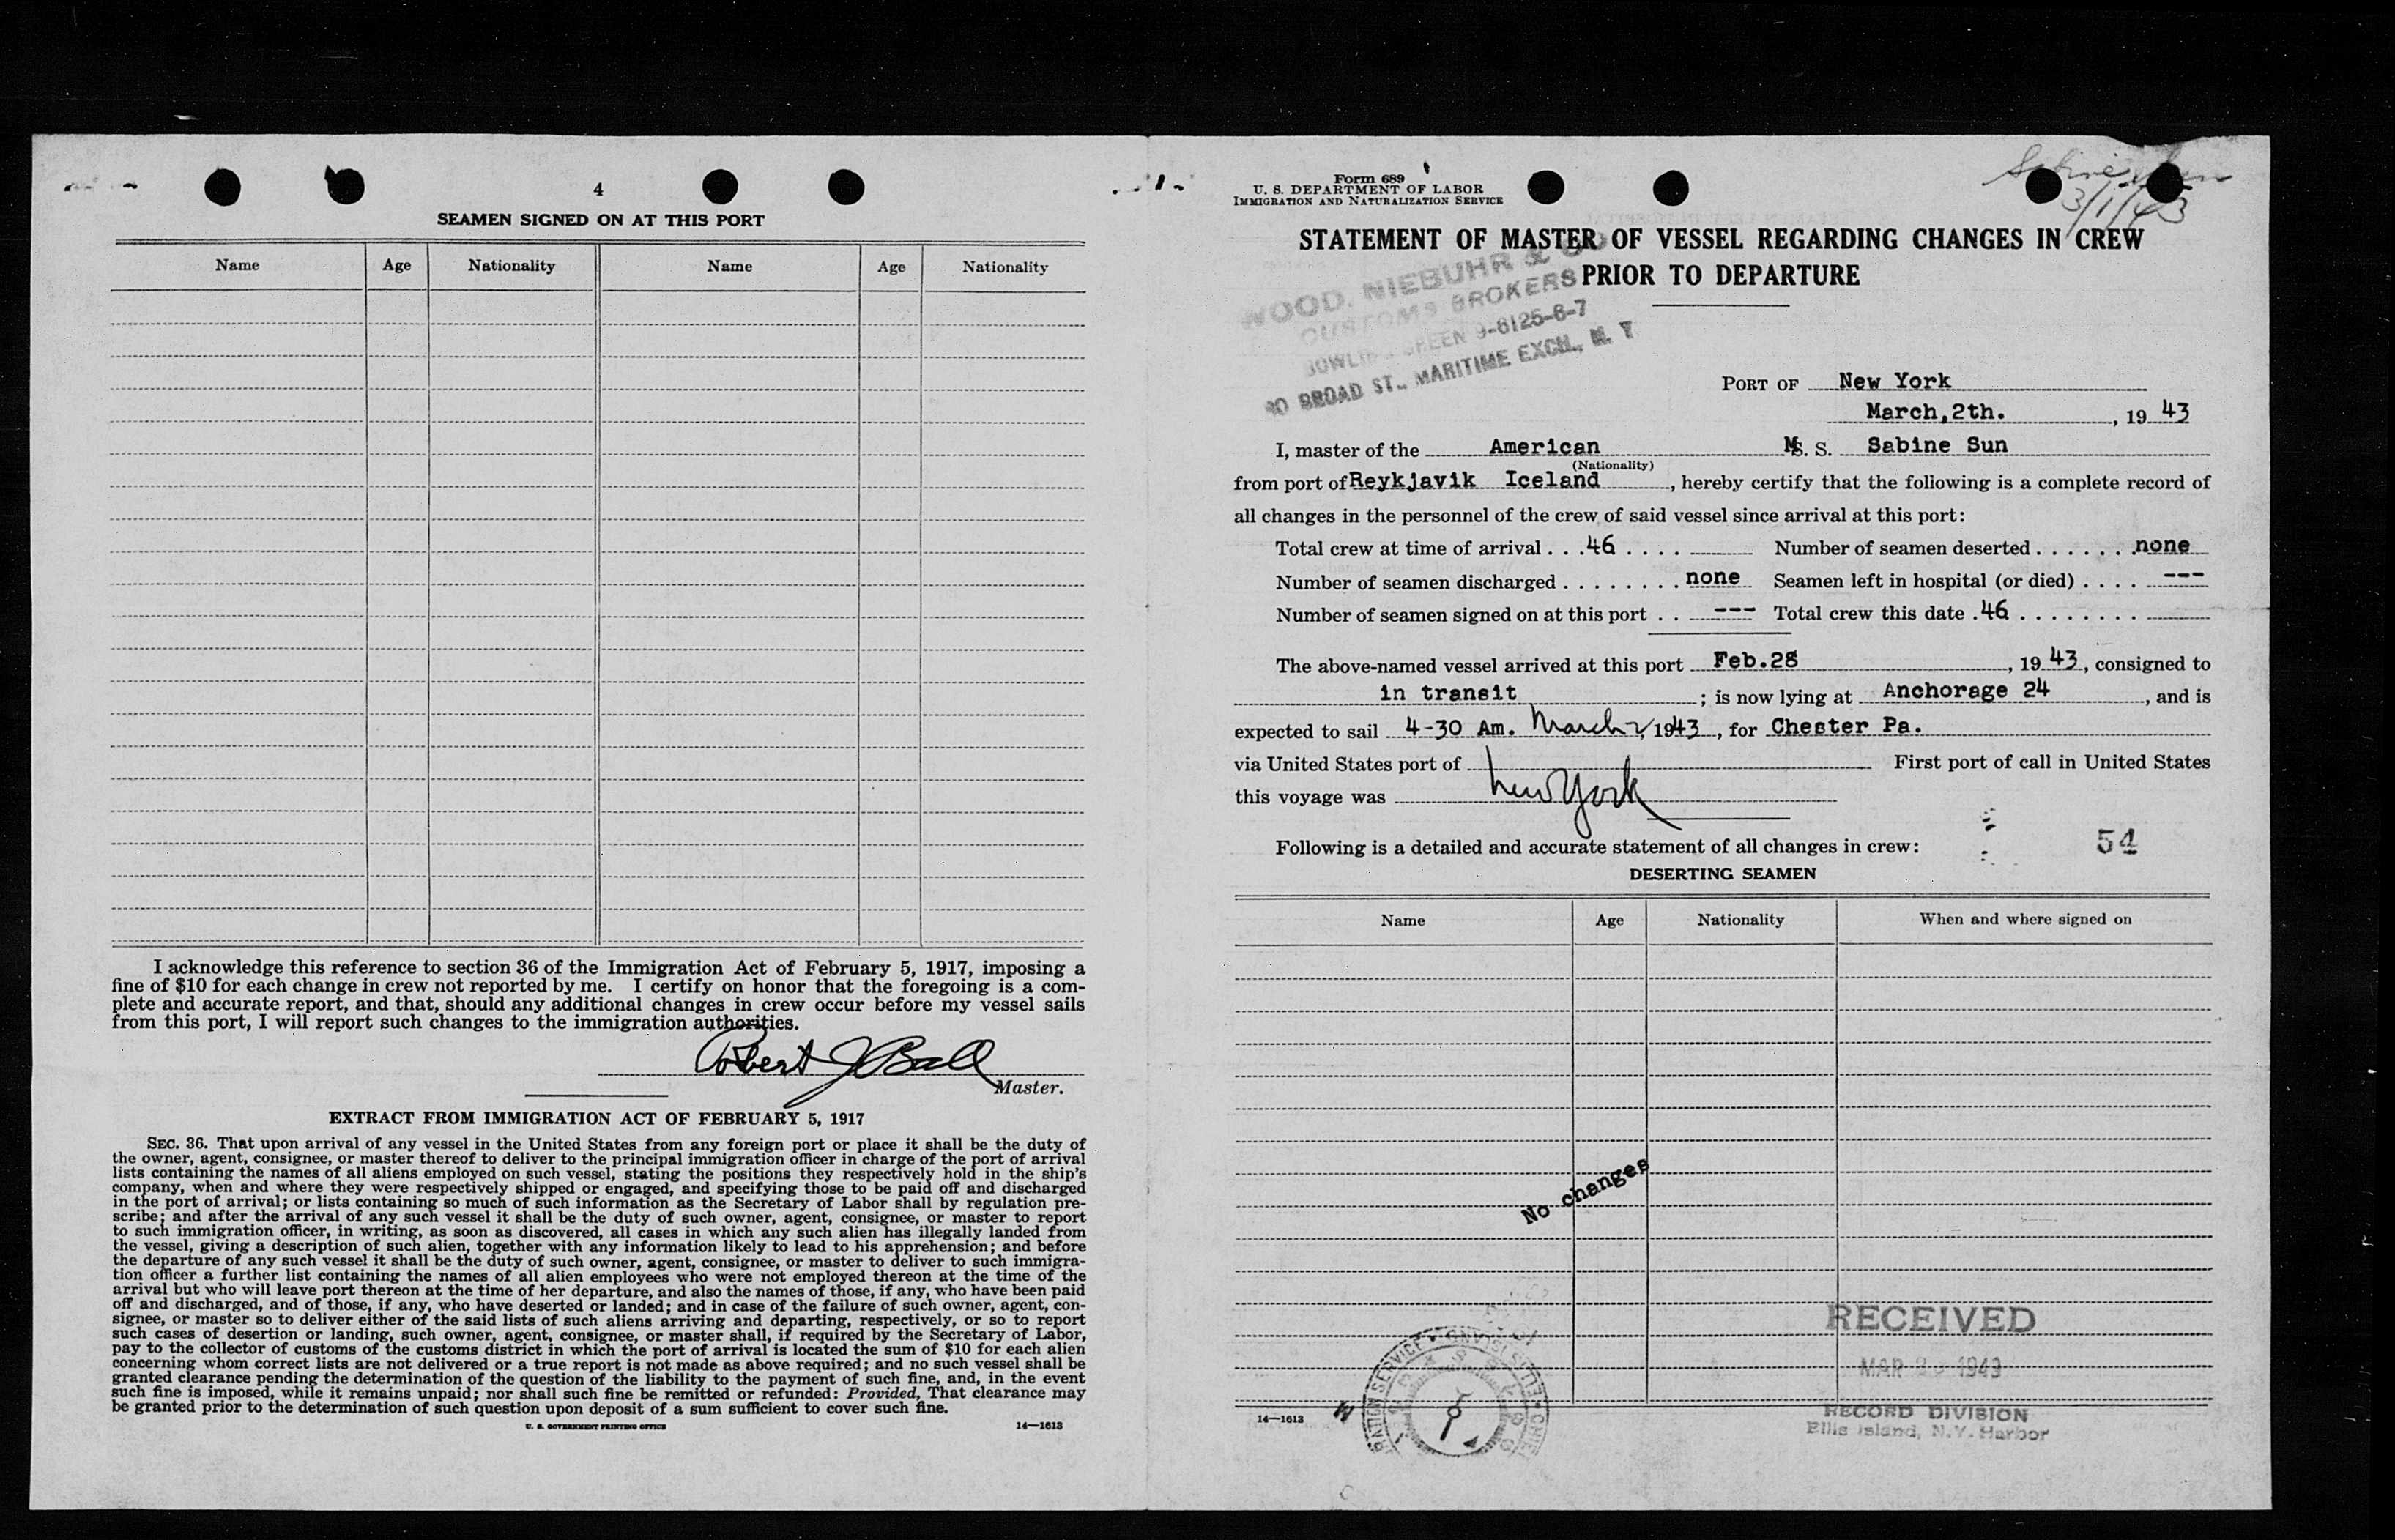 4
SEAMEN SIGNED ON AT THIS PORT
Name Age Nationality Name Age Nationality
I acknowledge this reference to section 36 of the Immigration Act of February 5, 1917, imposing a
fine of $10 for each change in crew not reported by me. I certify on honor that the foregoing is a com-
plete and accurate report, and that, should any additional changes in crew occur before my vessel sails
from this port, I will report such changes to the immigration authorities.
Robert J Ball
Master.
EXTRACT FROM IMMIGRATION ACT OF FEBRUARY 5, 1917
SEC. 36. That upon arrival of any vessel in the United States from any foreign port or place it shall be the duty of
the owner, agent, consignee, or master thereof to deliver to the principal immigration officer in charge of the port of arrival
lists containing the names of all aliens employed on such vessel, stating the positions they respectively hold in the ship's
company, when and where they were respectively shipped or engaged, and specifying those to be paid off and discharged
in the port of arrival; or lists containing so much of such information as the Secretary of Labor shall by regulation pre-
scribe; and after the arrival of any such vessel it shall be the duty of such owner, agent, consignee, or master to report
to such immigration officer, in writing, as soon as discovered, all cases in which any such alien has illegally landed from
the vessel, giving a description of such alien, together with any information likely to lead to his apprehension; and before
the departure of any such vessel it shall be the duty of such owner, agent, consignee, or master to deliver to such immigra-
tion officer a further list containing the names of all alien employees who were not employed thereon at the time of the
arrival but who will leave port thereon at the time of her departure, and also the names of those, if any, who have been paid
off and discharged, and of those, if any, who have deserted or landed; and in case of the failure of such owner, agent, con-
signee, or master so to deliver either of the said lists of such aliens arriving and departing, respectively, or so to report
such cases of desertion or landing, such owner, agent, consignee, or master shall, if required by the Secretary of Labor,
pay to the collector of customs of the customs district in which the port of arrival is located the sum of $10 for each alien
concerning whom correct lists are not delivered or a true report is not made as above required; and no such vessel shall be
granted clearance pending the determination of the question of the liability to the payment of such fine, and, in the event
such fine is imposed, while it remains unpaid; nor shall such fine be remitted or refunded: Provided, That clearance may
be granted prior to the determination of such question upon deposit of a sum sufficient to cover such fine.
U. S. GOVERNMENT PRINTING OFFICE 14—1613
Form 689
U. S. DEPARTMENT OF LABOR
IMMIGRATION AND NATURALIZATION SERVICE
3/1/43
STATEMENT OF MASTER OF VESSEL REGARDING CHANGES IN CREW
PRIOR TO DEPARTURE
WOOD, NIEBUHR & CO
CUSTOMS BROKERS
BOWLING GREEN 9-6125-6-7
BROAD ST., MARITIME EXCH., N. Y
PORT OF New York
March,2th., 19 43
I, master of the American M. S. Sabine Sun
(Nationality)
from port of Reykjavik Iceland, hereby certify that the following is a complete record of
all changes in the personnel of the crew of said vessel since arrival at this port:
Total crew at time of arrival . . . 46 . . . . Number of seamen deserted . . . . . . . none
Number of seamen discharged . . . . . . . . none Seamen left in hospital (or died) . . . . ---
Number of seamen signed on at this port . . --- Total crew this date . 46 . . . . . . . .
The above-named vessel arrived at this port Feb.28, 19 43, consigned to
in transit; is now lying at Anchorage 24, and is
expected to sail 4-30 Am. March 2, 1943, for Chester Pa.
via United States port of First port of call in United States
this voyage was New York
Following is a detailed and accurate statement of all changes in crew:
54
DESERTING SEAMEN
Name Age Nationality When and where signed on
No changes
RECEIVED
MAR 1943
RECORD DIVISION
Ellis Island, N.Y. Harbor
14—1613